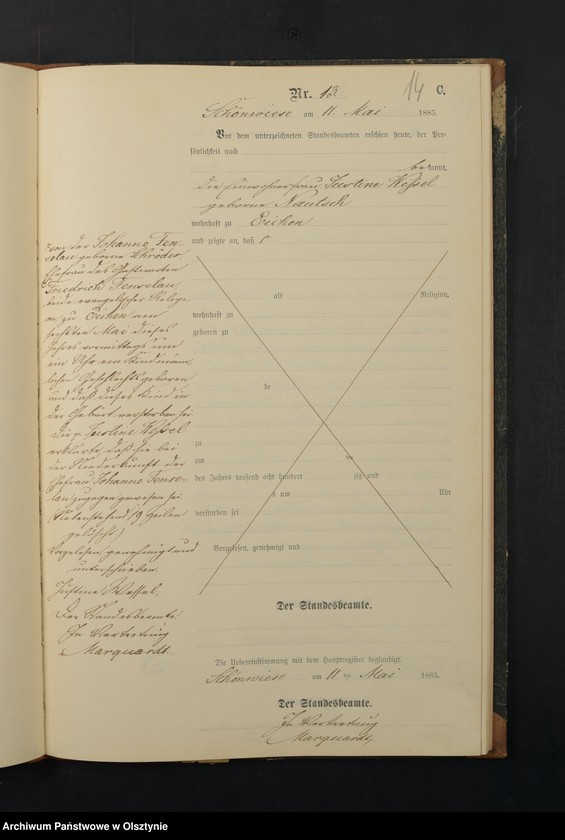 14
Nr. 13. C.
Schönwiese am 11 Mai 1885.
Vor dem unterzeichneten Standesbeamten erschien heute, der Per-
sönlichkeit nach
bekannt,
die Einwohnerfrau Justine Wessel
geborne
wohnhaft zu Eichen
und zeigte an, daß
alt Religion,
wohnhaft zu
geboren zu
de
zu
am ten
des Jahres tausend acht hundert zig und
s um Uhr
verstorben sei
Vorgelesen, genehmigt und
Der Standesbeamte.
von der Johanne Ten-
selau geborne Schröder,
Ehefrau des
Friedrich Tenselau,
beide evangelischer Religi-
on zu Eichen am
sechsten Mai dieses
Jahres vormittags um
ein Uhr ein Kind männ-
lichen Geschlechts geboren
und daß dieses Kind in
der Geburt verstorben sei
Die p. Justine Wessel
erklärte, daß sie bei
der Niederkunft der
Ehefrau Johanne Tense-
lau zugegen gewesen sei.
(Nebenstehend 19 Zeilen
gelöscht.)
Vorgelesen, genehmigt und
unterschrieben.
Justine Wessel.
Der Standesbeamte
In Vertretung
Marquardt
Die Uebereinstimmung mit dem Hauptregister beglaubigt.
Schönwiese am 11 ten Mai 1885.
Der Standesbeamte.
In Vertretung
Marquardt,
Archiwum Państwowe w Olsztynie